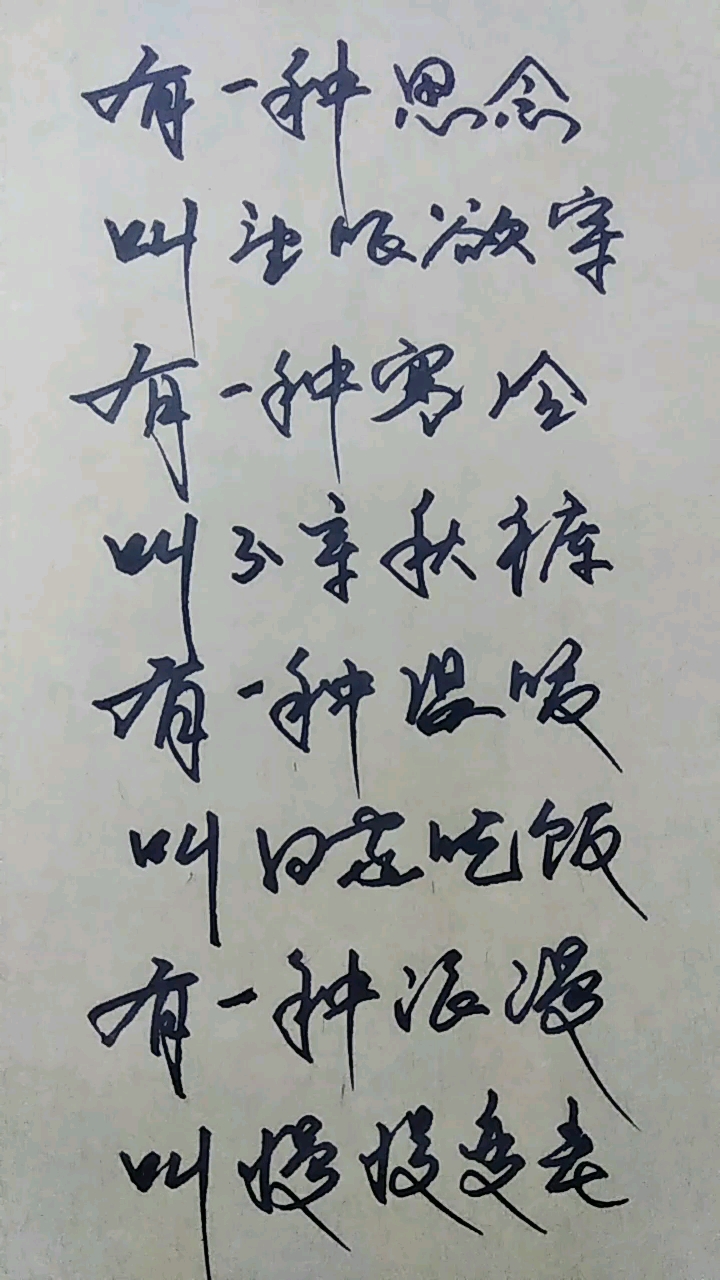 有一种思念
叫望眼欲穿
有一种寒冷
叫不穿秋裤
有一种温暖
叫回家吃饭
有一种浪漫
叫慢慢变老